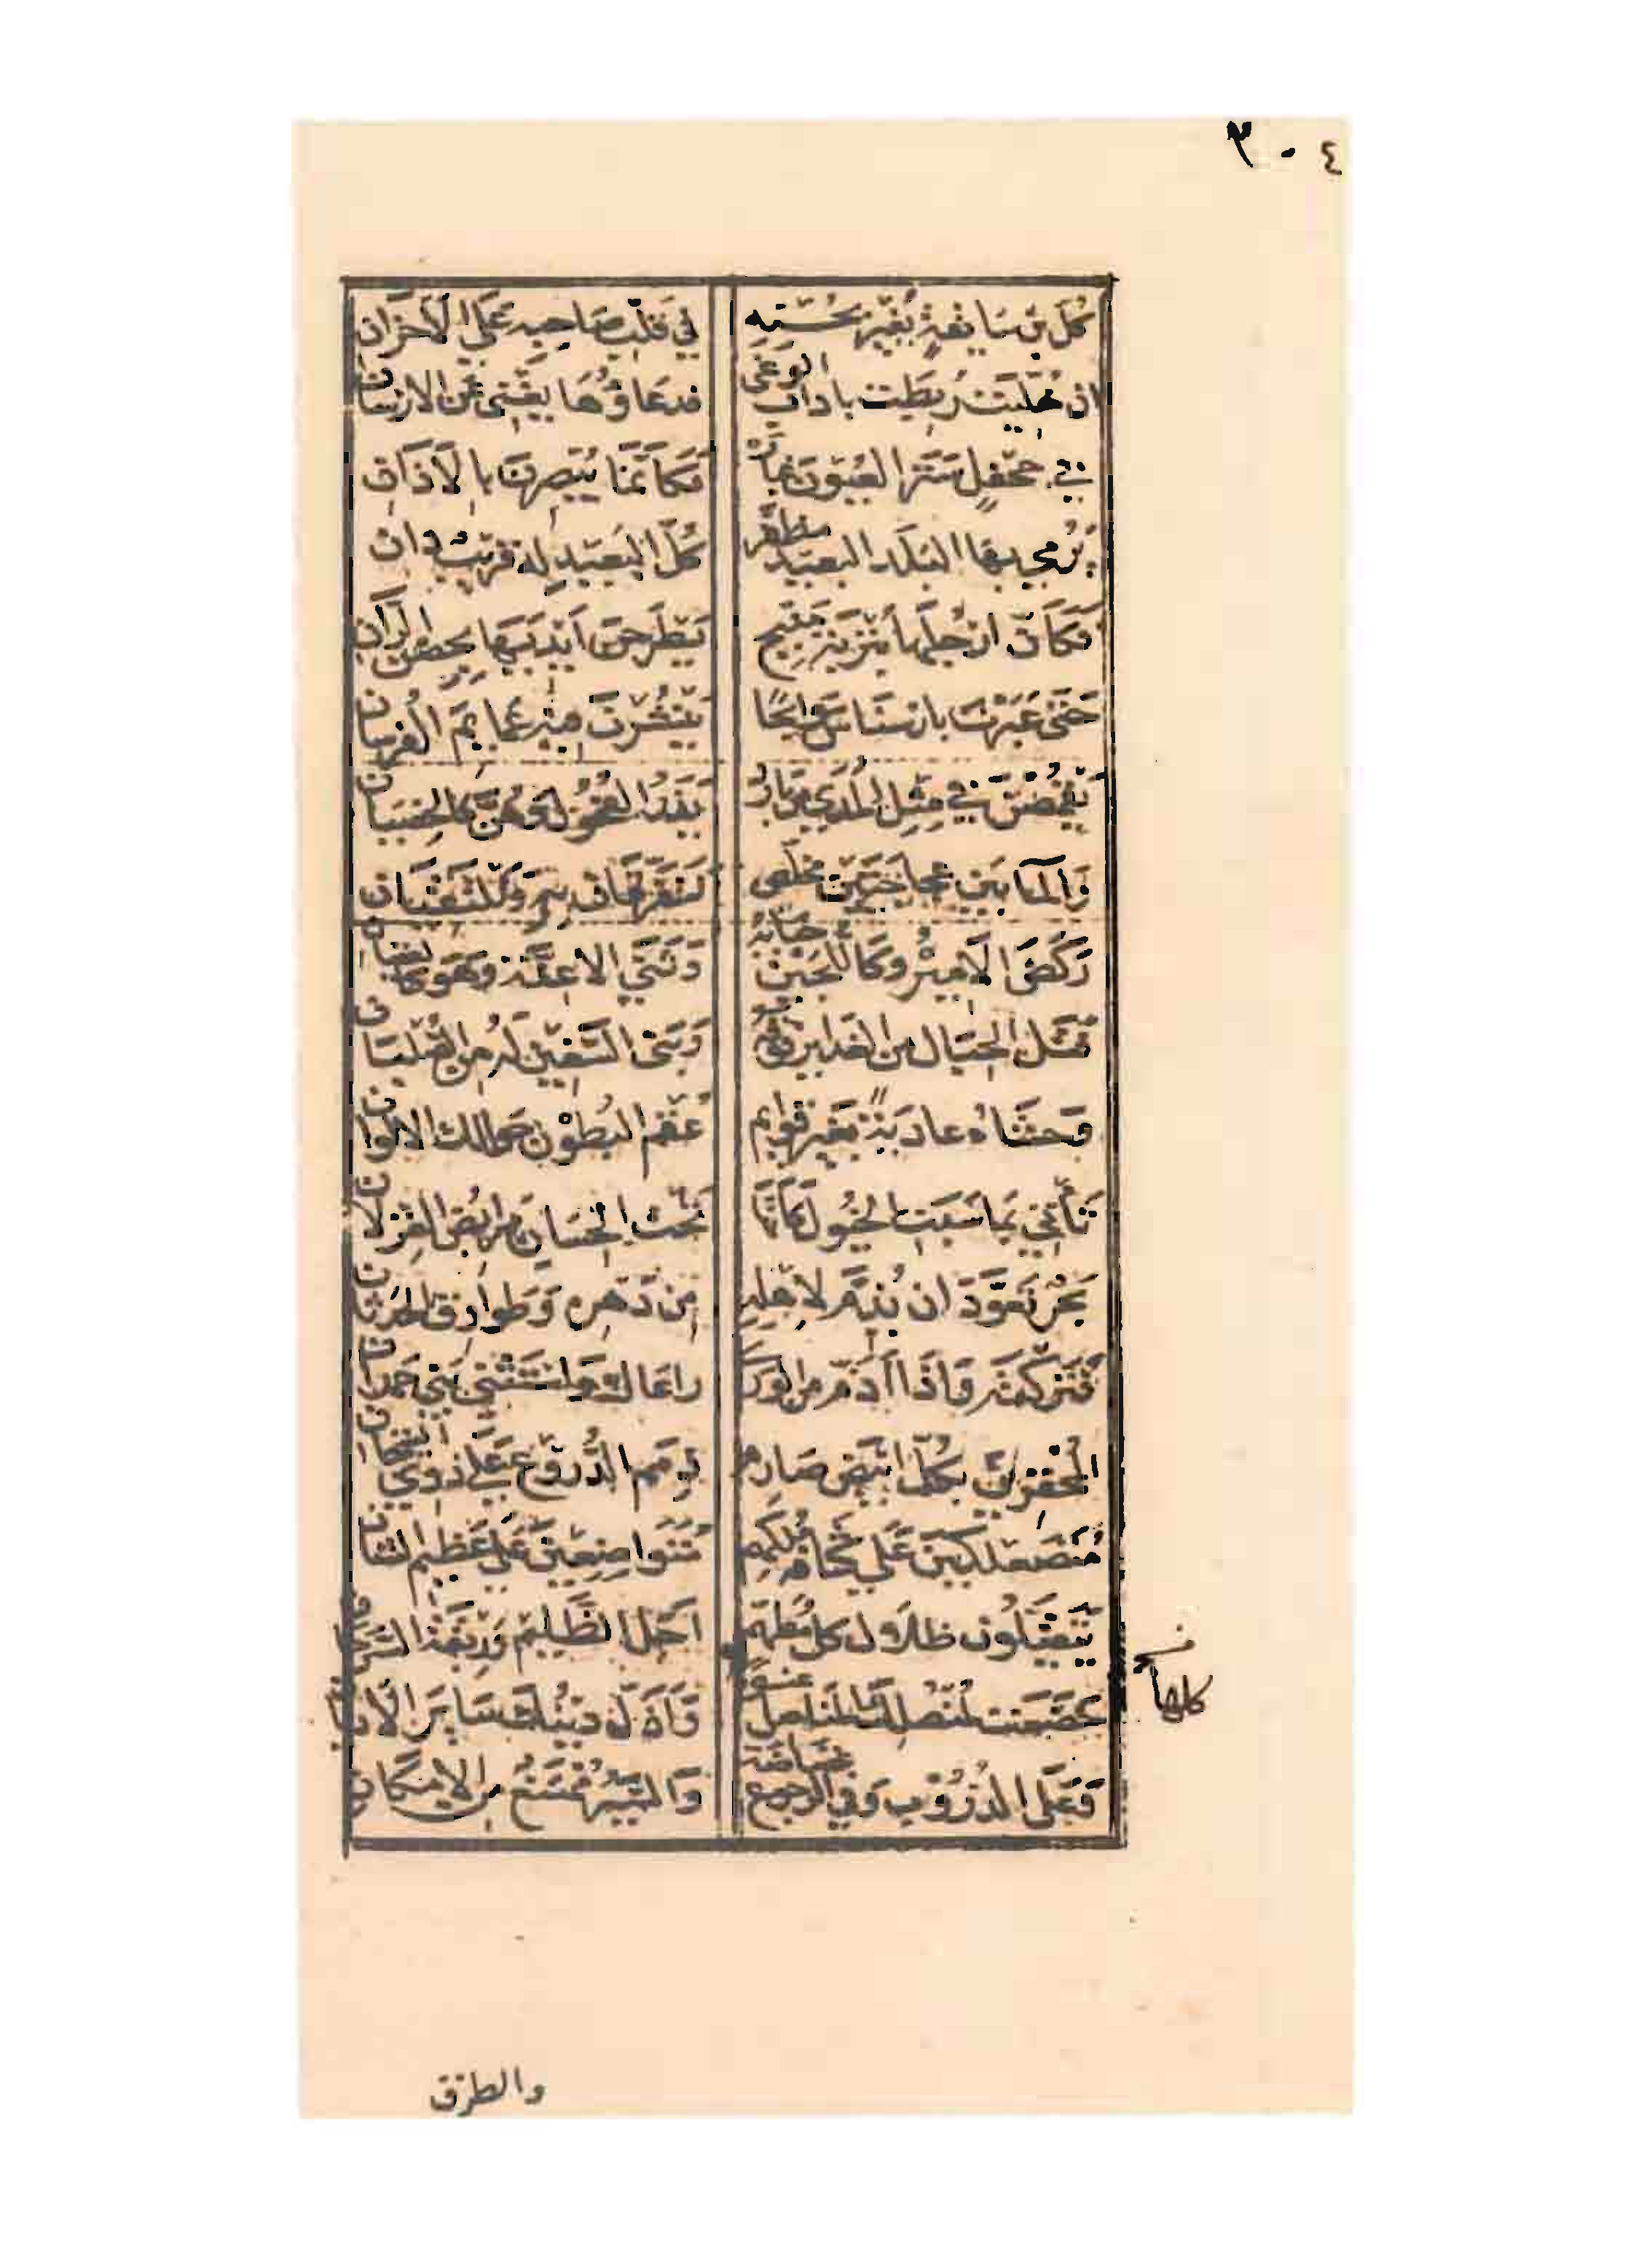 ٣٠٤
كل بن سابقة يغير بحسنه في قلب صاحبه على الاحزان
ان خليت ربطت باداب الوغى فدعاؤها يغني عن الارسان
في جحفل ستر العيون غباره فكأنما يبصرن بالآذان
يرمي بها البلد البعيد مظفر كل البعيد له قريب دان
فكأن ارجلها بتربة منبج يطرحن ايديها بحصن الران
حتى عبرن بارسناس سوابحا ينشرن فيه عمايم الفرسان
يقمصن في مثل المدى من بارد يذر الفحول وهن كالخصيان
والما بين عجاجتين مخلص تتفرقان به وتلتقيان
ركض الامير وكاللجين حبابه وثنى الاعنة وهو كالعقيان
فتل الحبال من الغداير فوقه وبنى السفين له من الصلبان
وحشاه عادية بغير قوايم عقم البطون حوالك الالوان
تأتي بما سبت الخيول كأنها تحت الحسان مرابض الغزلان
بحر تعود ان يذم لاهله من دهره وطوارق الحدثان
فتركته واذا أذم من الورى راعاك واستثنى بني حمدان
المخفرين بكل ابيض صارم ذمم الدروع على ذوي التيجان
متصعلكين على كثافة ملكهم متواضعين على عظيم الشان
يتقيلون ظلال كل مطهم اجل الظليم وربقة السرحان
خضعت لمنصلك المناصل عنوة واذل دينك ساير الاديان
كلها
وعلى الدروب وفي الرجوع غضاضة والسير ممتنع من الامكان
والطرق